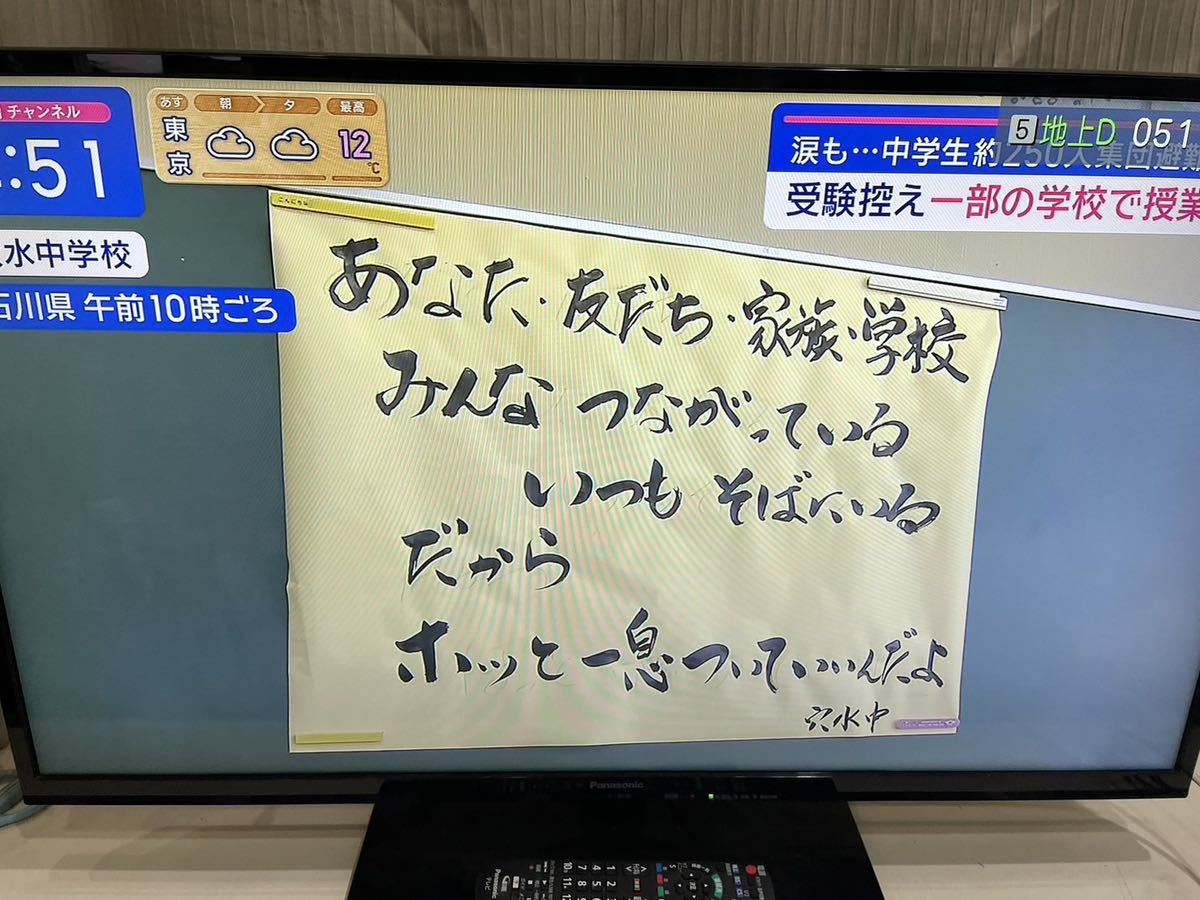 チャンネル
:51
水中学校
石川県 午前10時ごろ
あす 朝 夕 最高
東京 12℃
5 地上D 051
涙も…中学生約250人集団避難
受験控え一部の学校で授業
あなた・友だち・家族・学校
みんな つながっている
いつも そばにいる
だから
ホッと一息ついていいんだよ
穴水中
Panasonic
Panasonic
テレビ
1 2 3
4 5 6
7 8 9
10 11 12